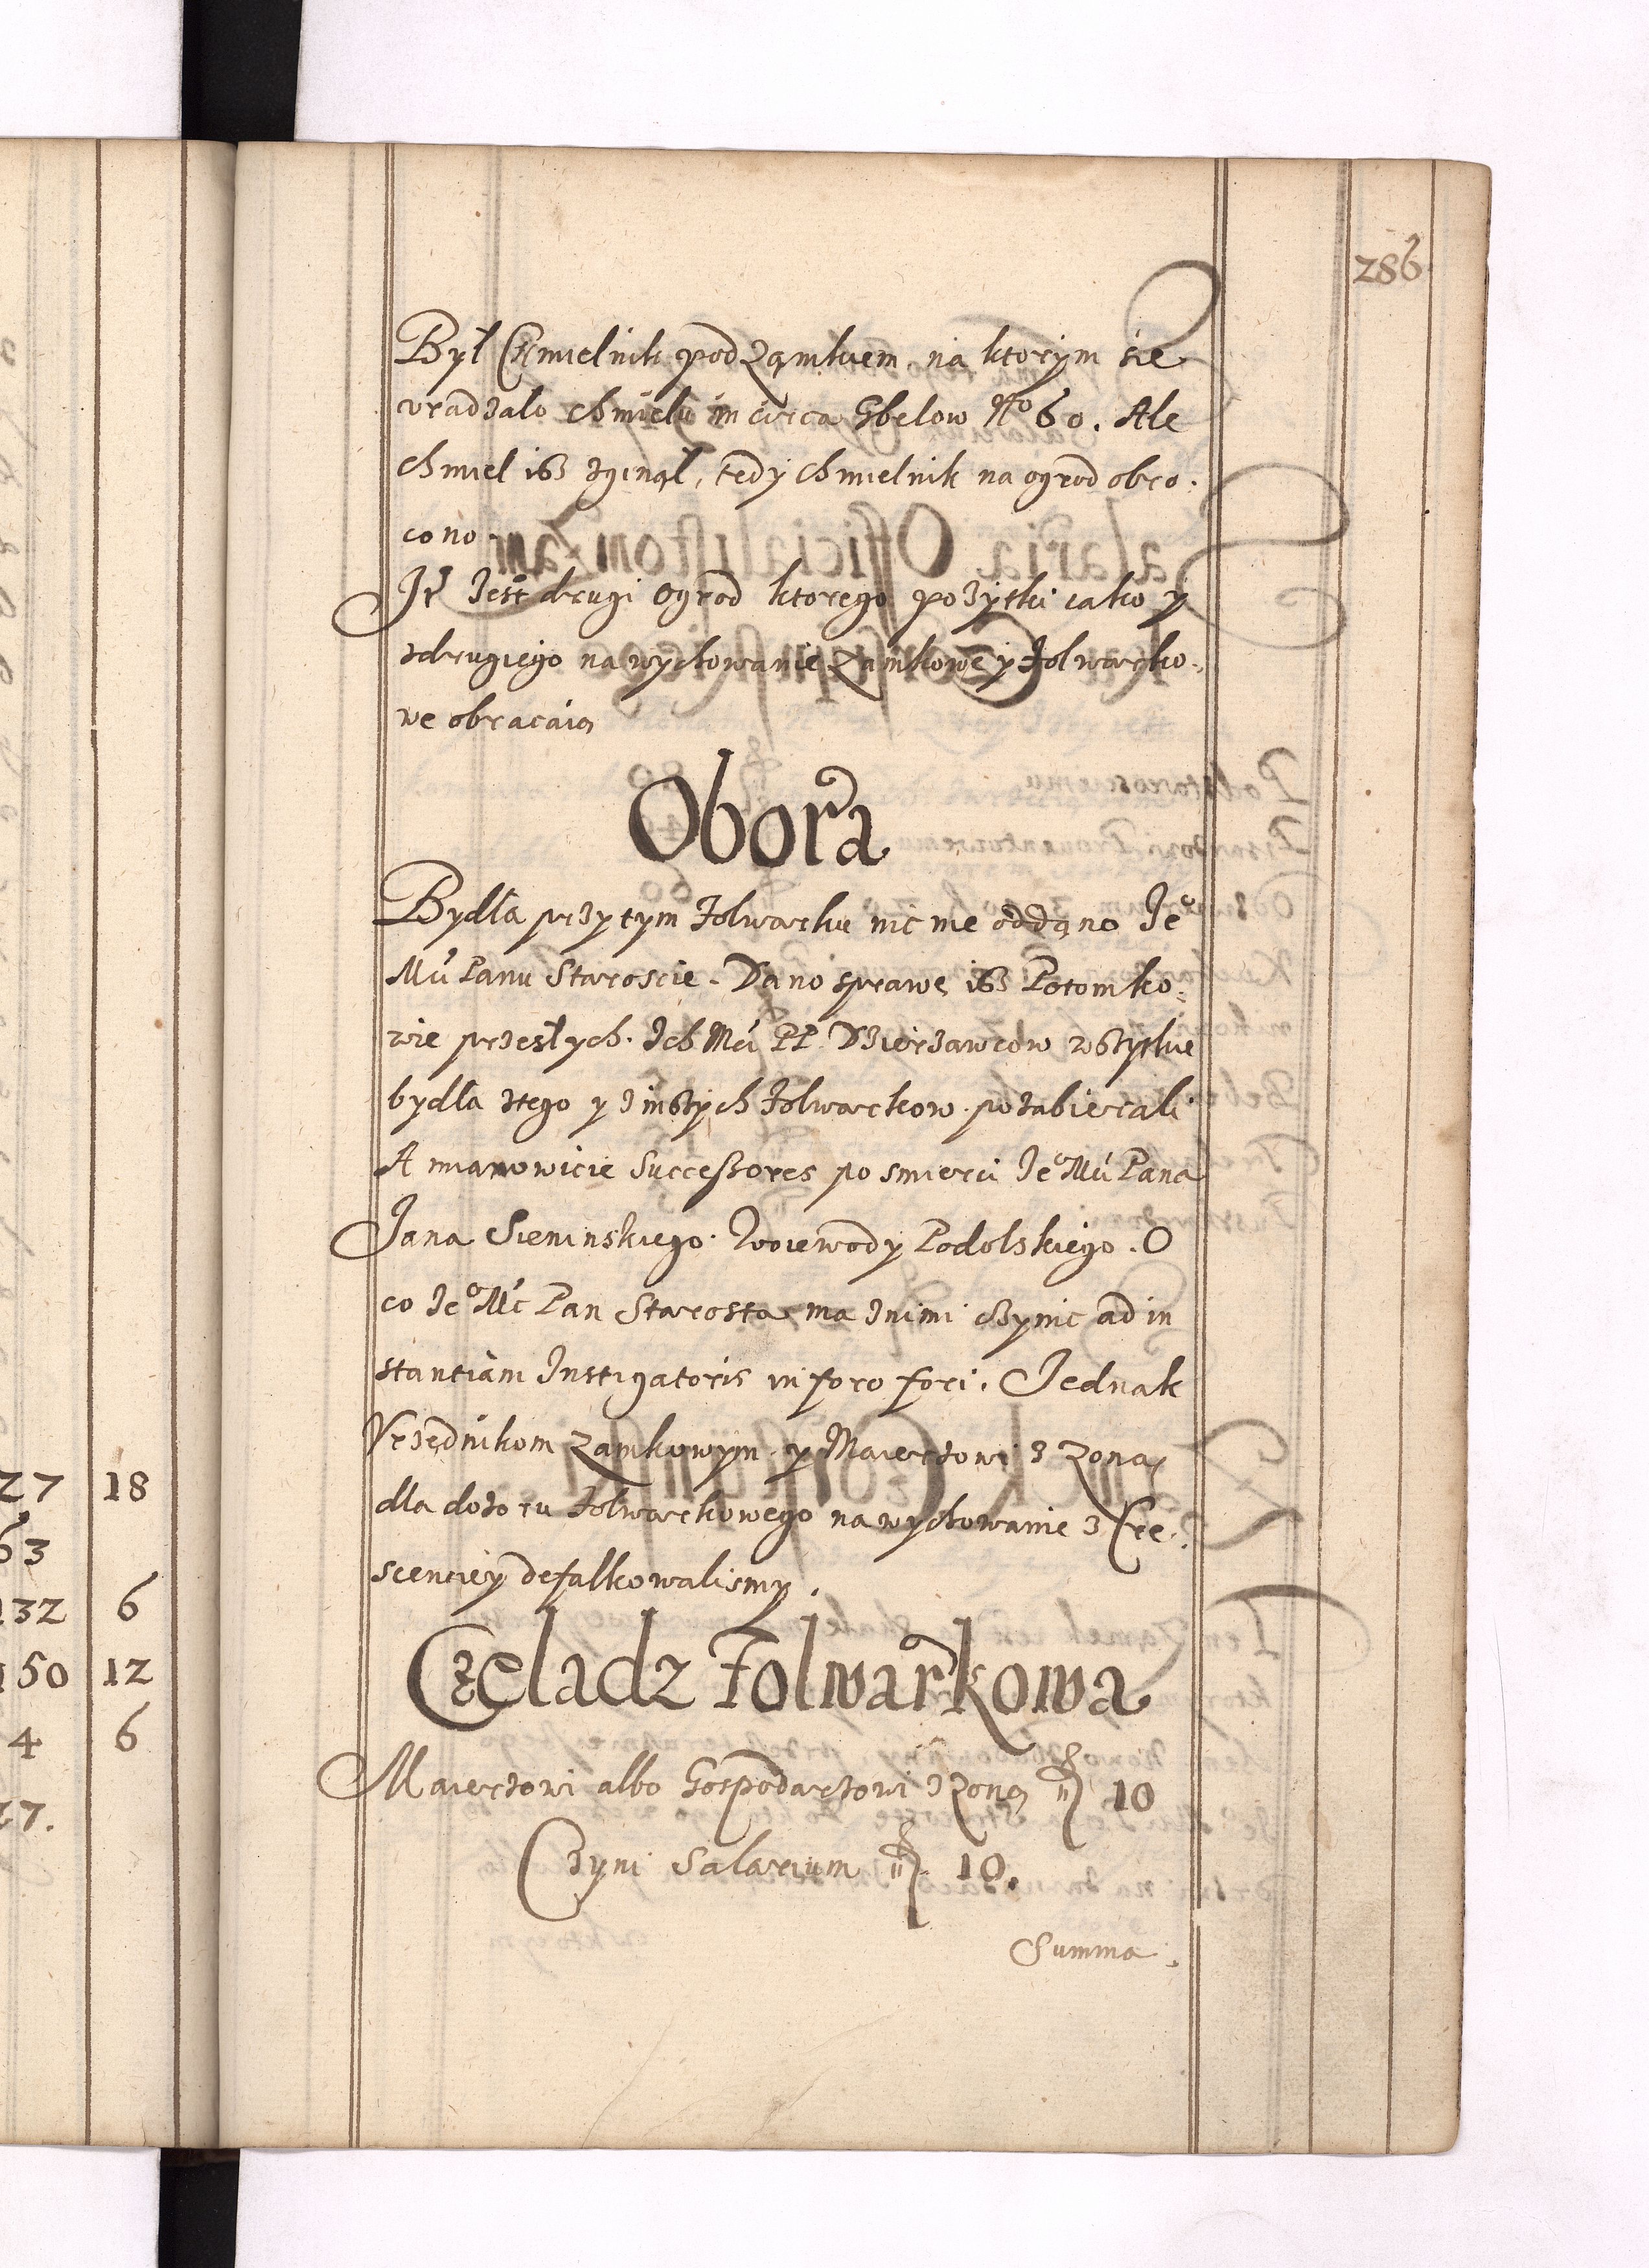 286
Był Chmielnik pod Zamkiem, na ktorym sie
vradzało chmielu in circa Gbelow No 60. Ale
chmiel isz zginął, tedy chmielnik na ogrod obro-
cono.
Jt Jest drugi ogrod ktorego pozytki iako y
zdrugiego na wychowanie Zamkowe y folwarko-
we obracaią
Obora
Bydła przy tym folwarku nic nie oddano Jeo
Mci Panu Staroscie. Dano sprawę isz Potomko-
wie przeszłych Ich Mci PP Dzierzawcow wszytkie
bydła ztego y zinszych folwarkow pozabierali
A mianowicie Successores po smierci Jeo Mci Pana
Jana Sieninskiego Woiewody Podolskiego. O
co Jeo Mc Pan Starosta ma znimi czynic ad in
stantiam Instigatoris in foro fori. Jednak
Vrzędnikom Zamkowym y Maierzowi z Zoną
dla dozoru folwarkowego na wychowanie z Cre-
scenciey defalkowalismy.
Czeladz folwarkowa
Maierzowi albo Gospodarzowi z Zoną fl 10
Czyni Salarium fl 10.
Summa.
27 18
63
132 6
150 12
4 6
27.